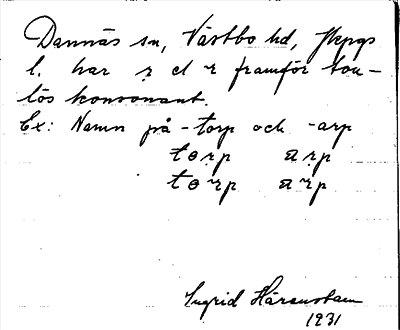 Dannäs sn, Västbo hd, Jkpgs
l. har ɀ el ɀ framför ton-
lös konsonant.
Ex: Namn på -torp och -arp
tɵrp arp
tɵrp arp
Ingrid Härenstam
1931